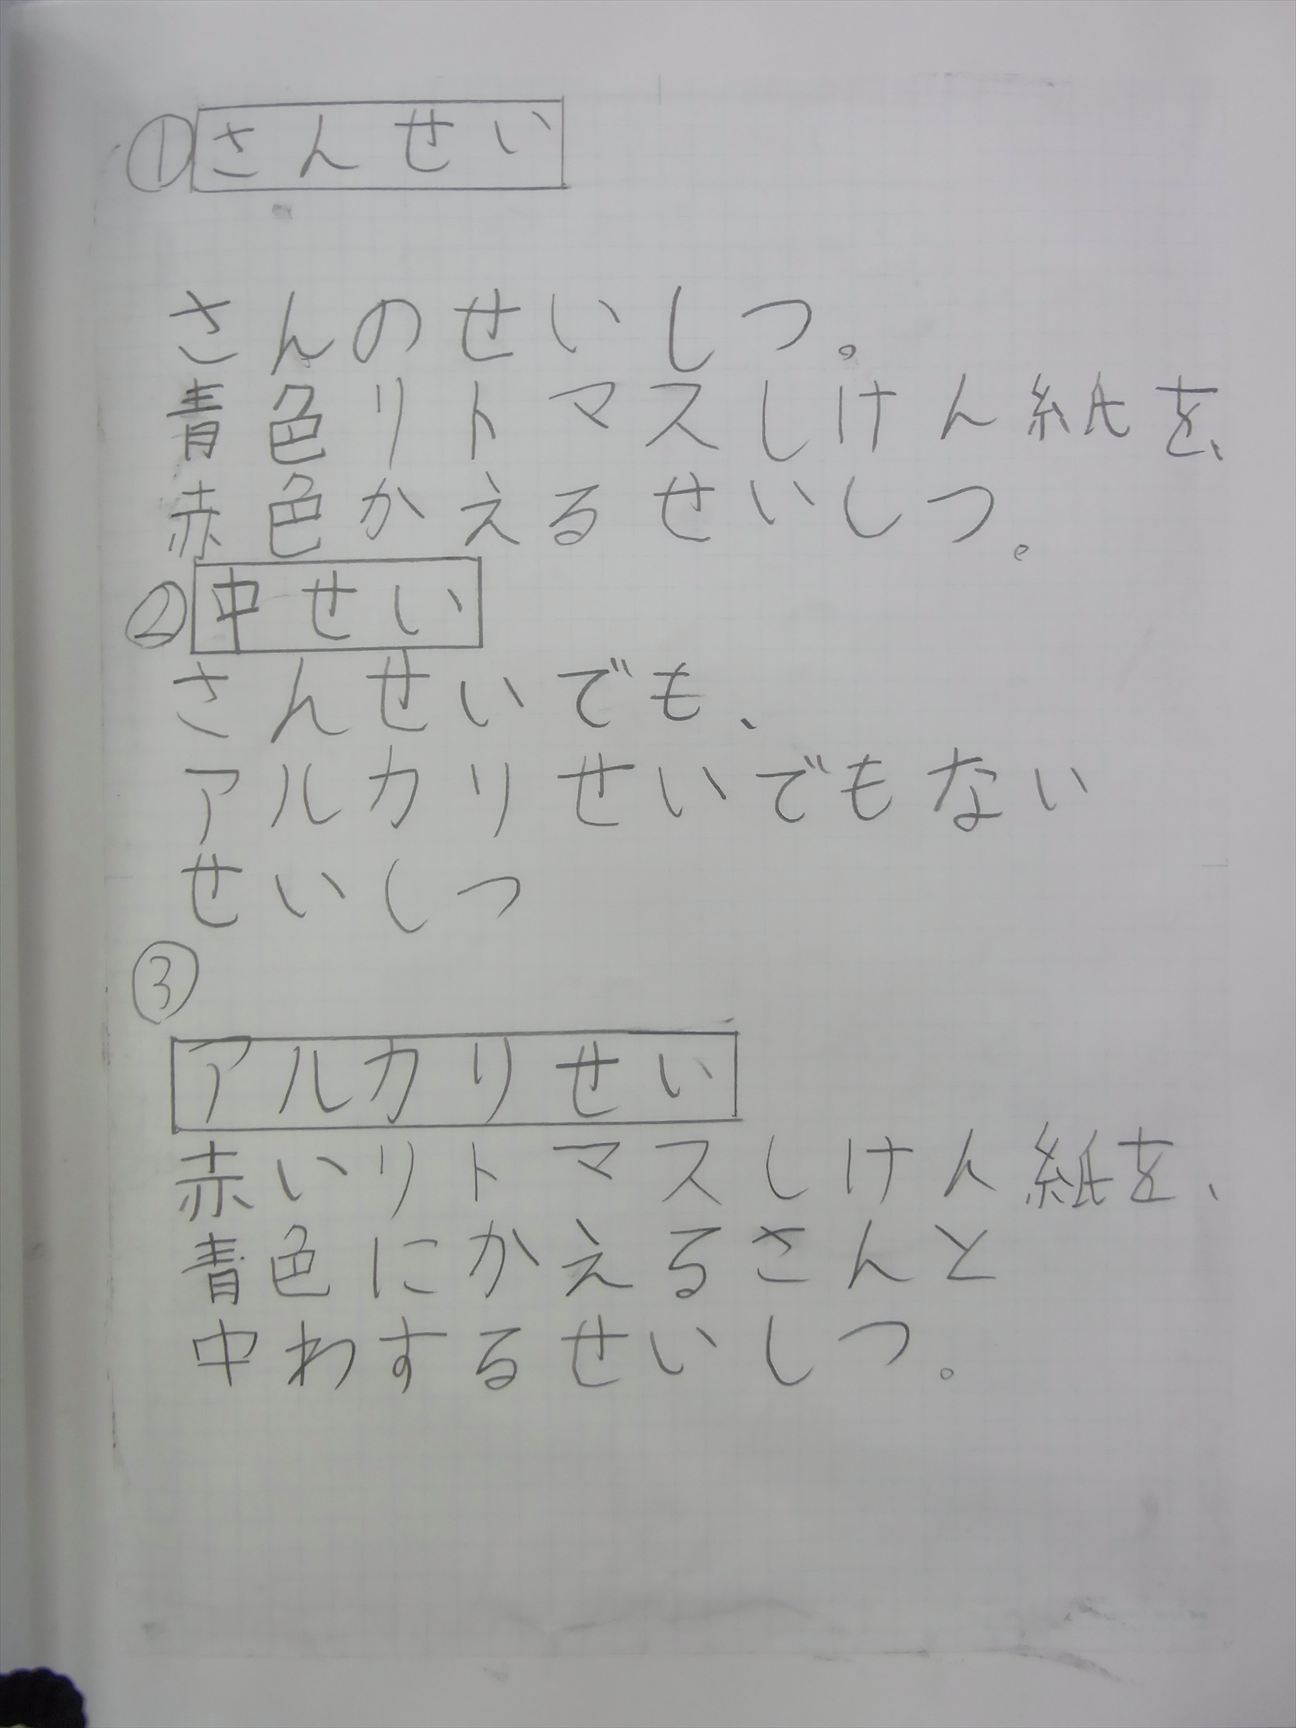 ①さんせい
さんのせいしつ。
青色リトマスしけん紙を、
赤色かえるせいしつ。
②中せい
さんせいでも、
アルカリせいでもない
せいしつ
③
アルカリせい
赤いリトマスしけん紙を、
青色にかえるさんと
中わするせいしつ。